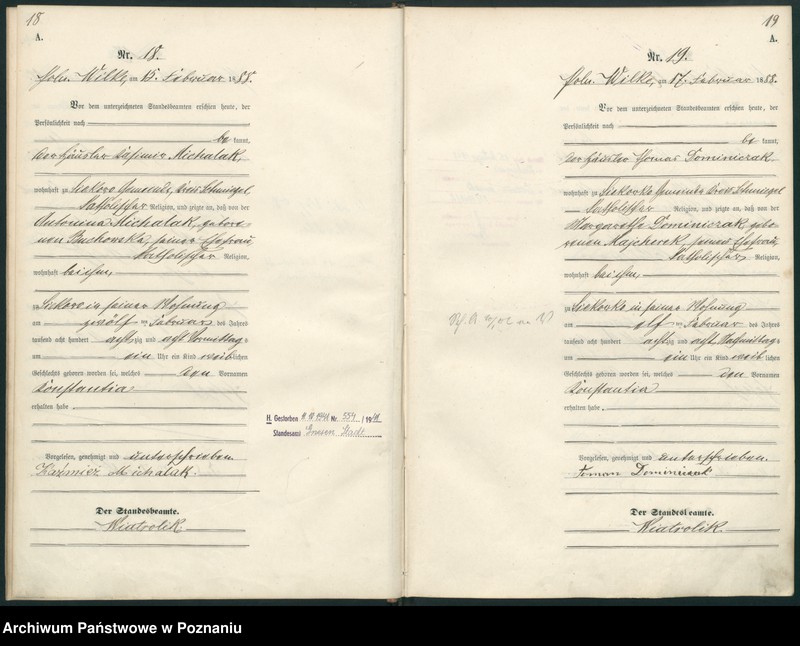 18
A.
Nr. 18.
Poln. Wilke, am 15. Februar 1888.
Vor dem unterzeichneten Standesbeamten erschien heute, der
Persönlichkeit nach
be kannt,
der Häusler Casimir Michalak,
wohnhaft zu Siekowo Gemeinde, Kreis Schmiegel
katholischer Religion, und zeigte an, daß von der
Antonina Michalak, gebore-
nen Buchowska, seiner Ehefrau
katholischer Religion,
wohnhaft bei ihm,
zu Siekowo in seiner Wohnung
am zwölf ten Februar des Jahres
tausend acht hundert acht zig und acht Vormittags
um ein Uhr ein Kind weib lichen
Geschlechts geboren worden sei, welches den Vornamen
Konstantia
erhalten habe.
Vorgelesen, genehmigt und unterschrieben.
Kaźmierz Michalak.
Der Standesbeamte.
Wiatrolik.
H. Gestorben Nr. 554 / 19
Standesamt Gnesen Stadt
19
A.
Nr. 19.
Poln. Wilke, am 17. Februar 1888.
Vor dem unterzeichneten Standesbeamten erschien heute, der
Persönlichkeit nach
be kannt,
der Häusler Thomas Dominiczak.
wohnhaft zu Siekowko Gemeinde Kreis Schmiegel
katholischer Religion, und zeigte an, daß von der
Margarethe Dominiczak, gebo-
renen Majcherek, seiner Ehefrau,
katholischer Religion,
wohnhaft bei ihm,
zu Siekowko in seiner Wohnung
am elf ten Februar des Jahres
tausend acht hundert acht zig und acht Nachmittags
um ein Uhr ein Kind weib lichen
Geschlechts geboren worden sei, welches den Vornamen
Konstantia
erhalten habe.
Vorgelesen, genehmigt und unterschrieben.
Toman Dominiczak
Der Standesbeamte.
Wiatrolik.
Archiwum Państwowe w Poznaniu